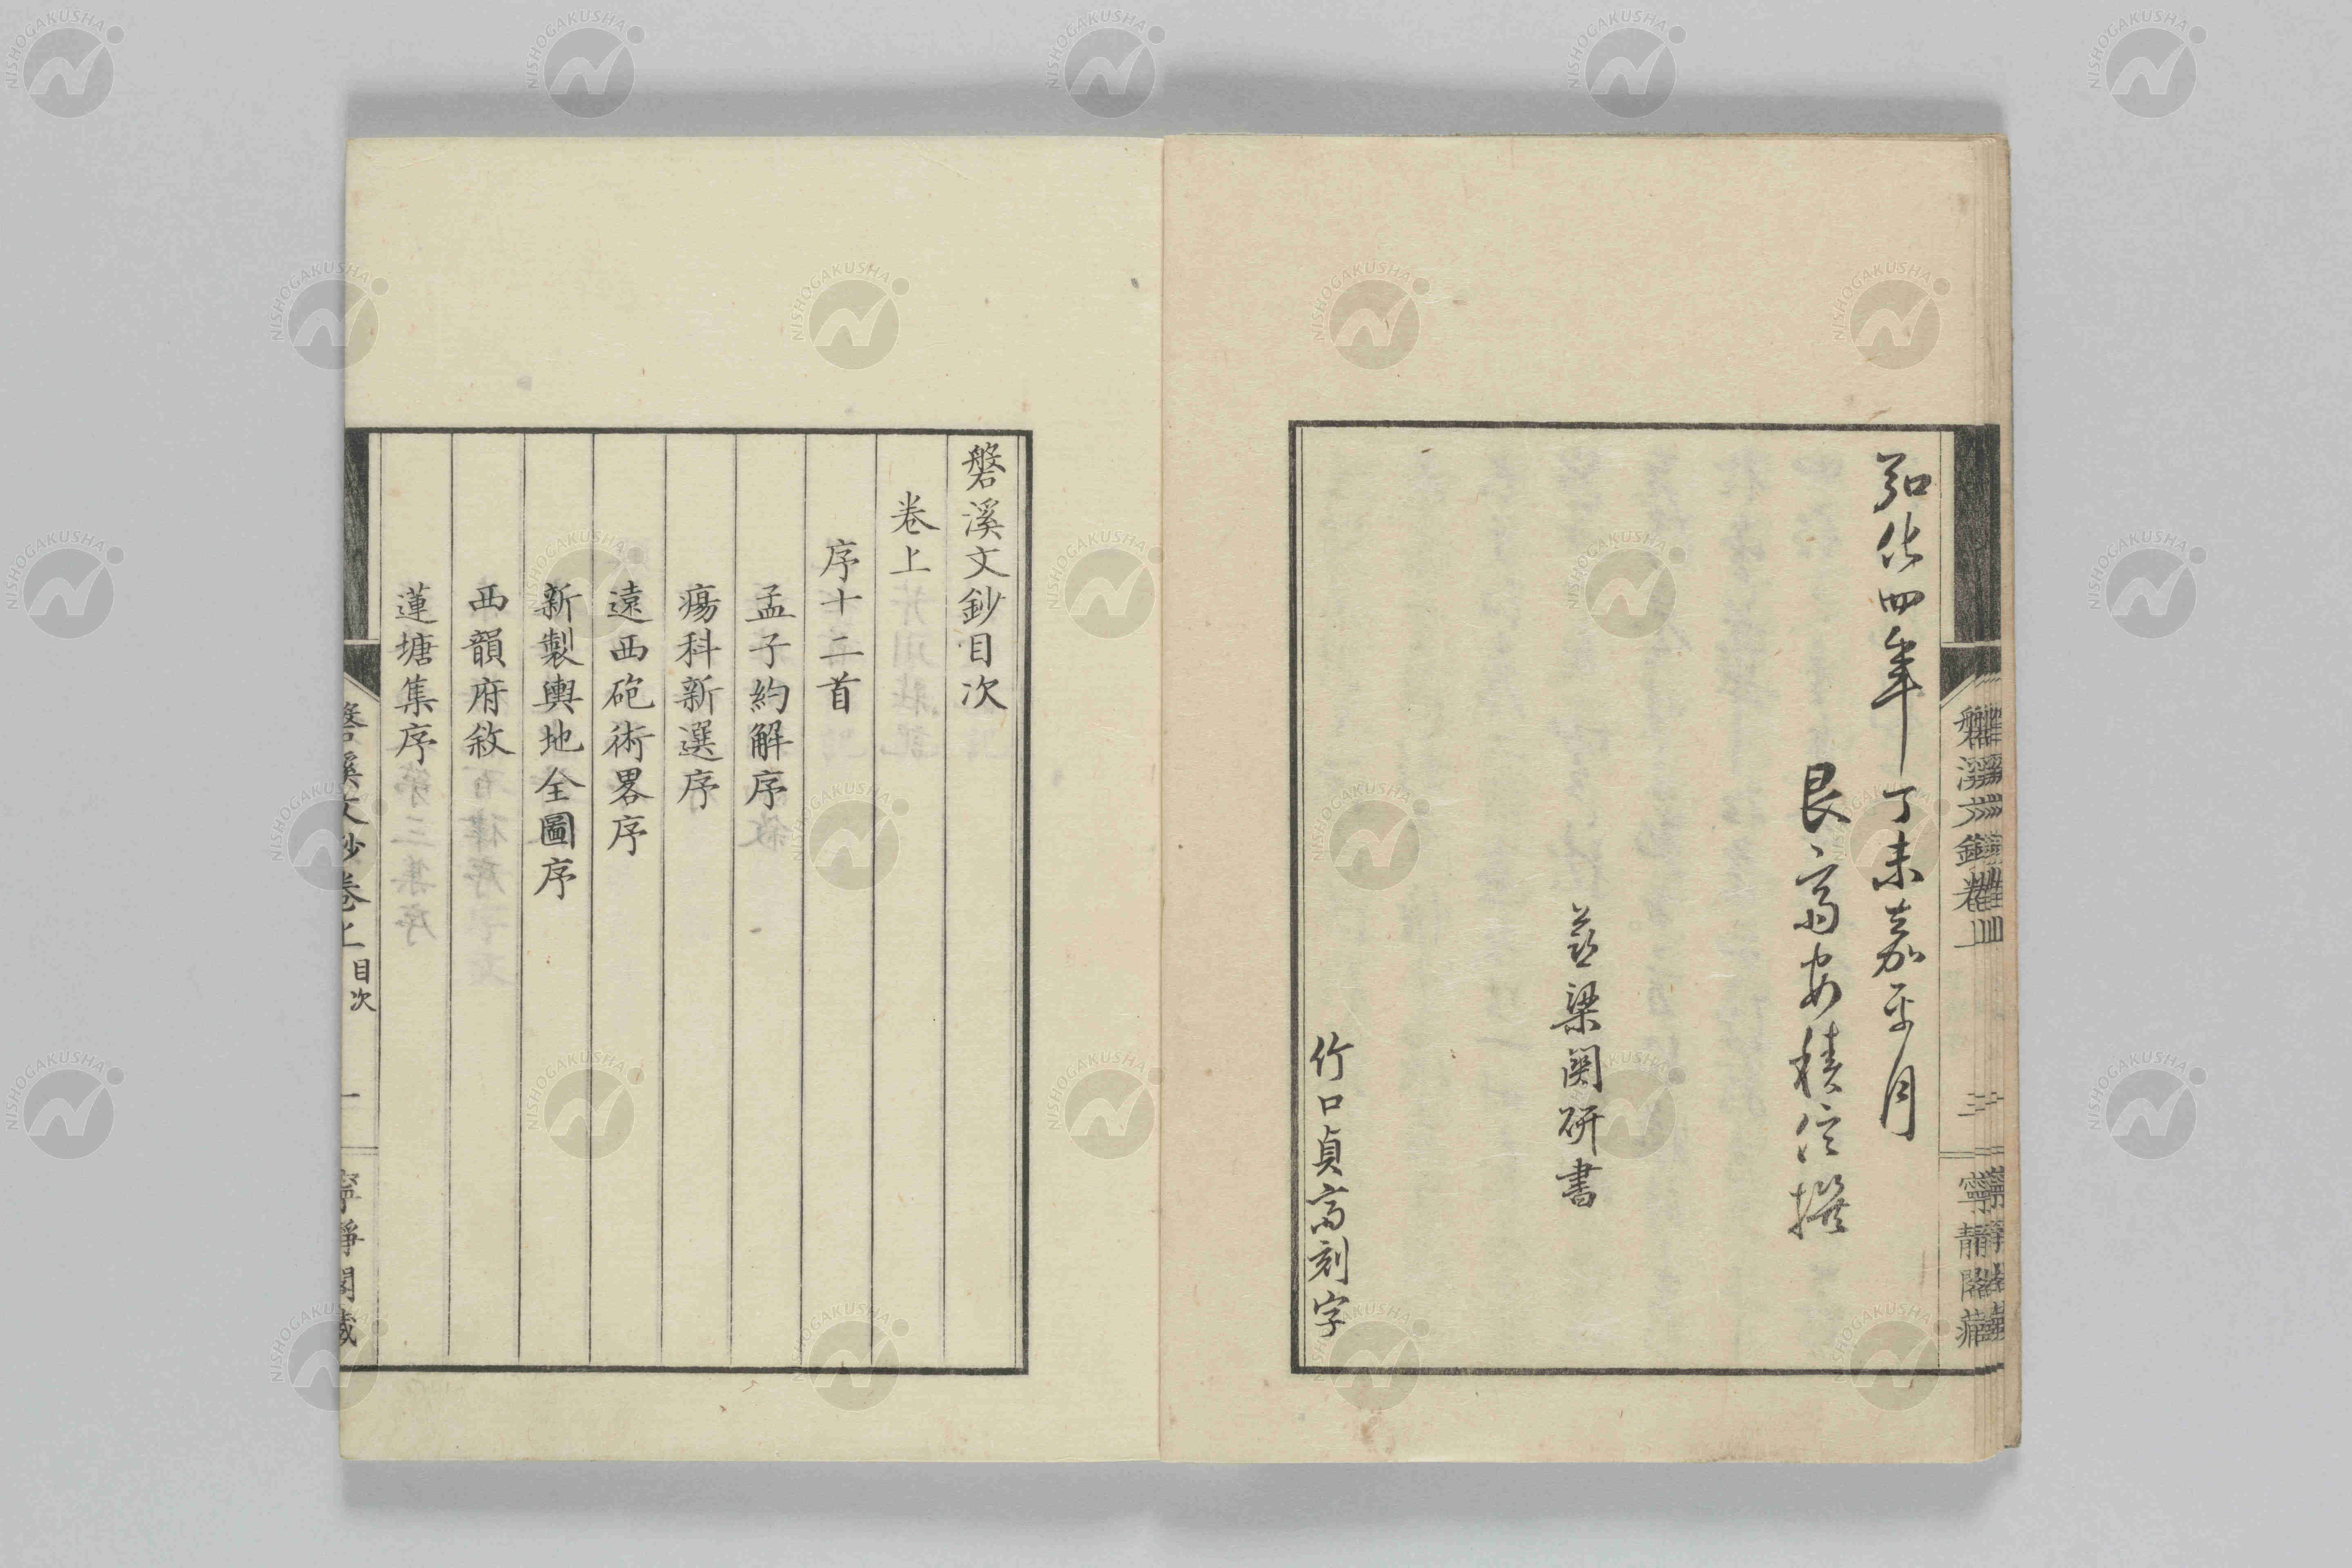 弘化四年丁未嘉平月
艮齋安積信撰
蓝梁関研書
竹口貞齋刻字
磐溪文鈔目次
卷上
序十二首
孟子約解序
瘍科新選序
遠西砲術畧序
新製輿地全圖序
西韻府敘
蓮塘集序
磐溪文鈔卷上 目次 一 寧靜閣藏
NISHOGAKUSHA